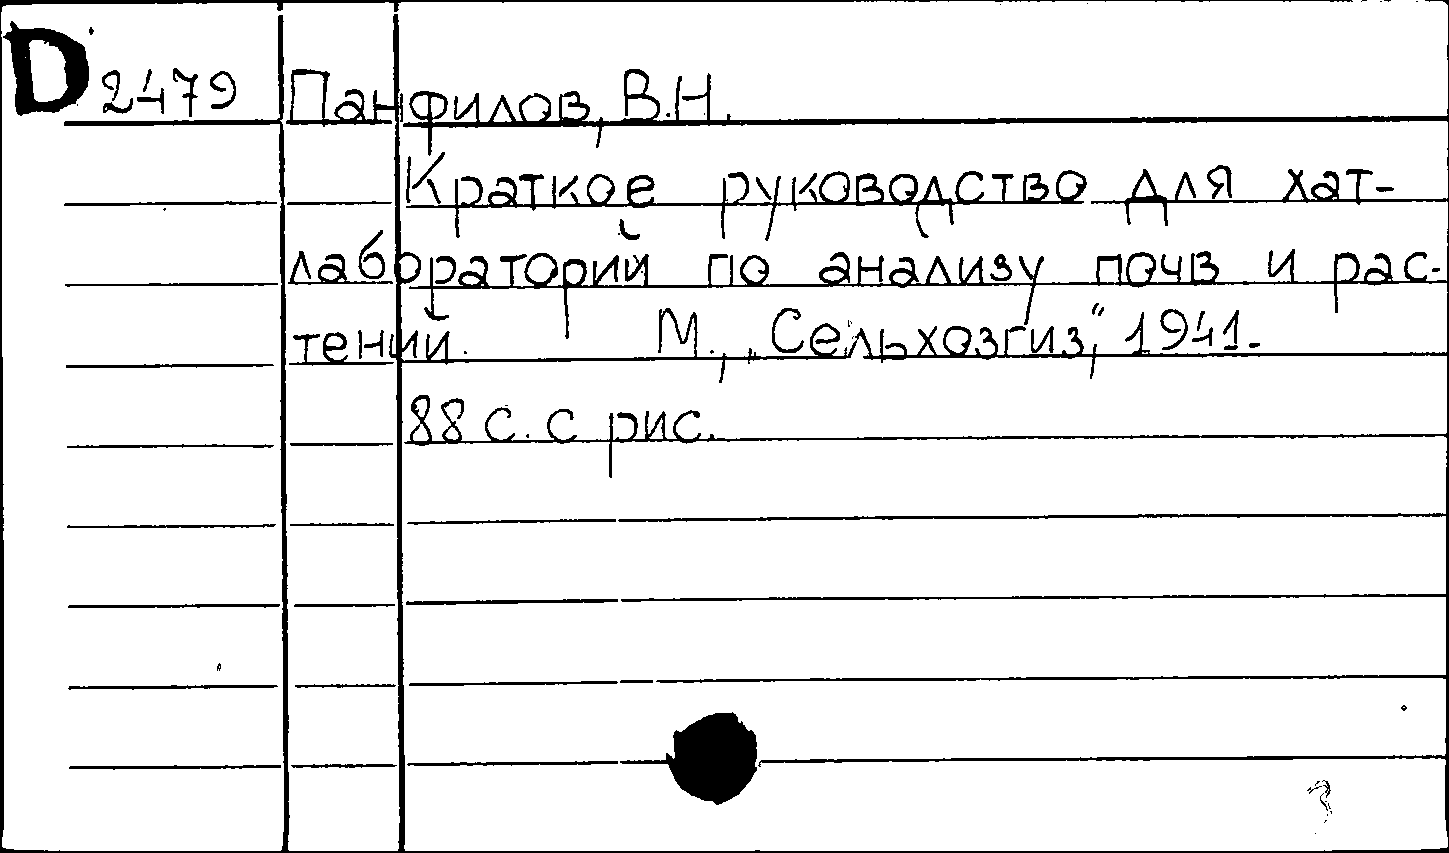 D 2479 Панфилов, В.Н.
Краткое руководство для хат-
лабораторий по анализу почв и рас-
тений. М., „Сельхозгиз“, 1941.
88 с. с рис.
3